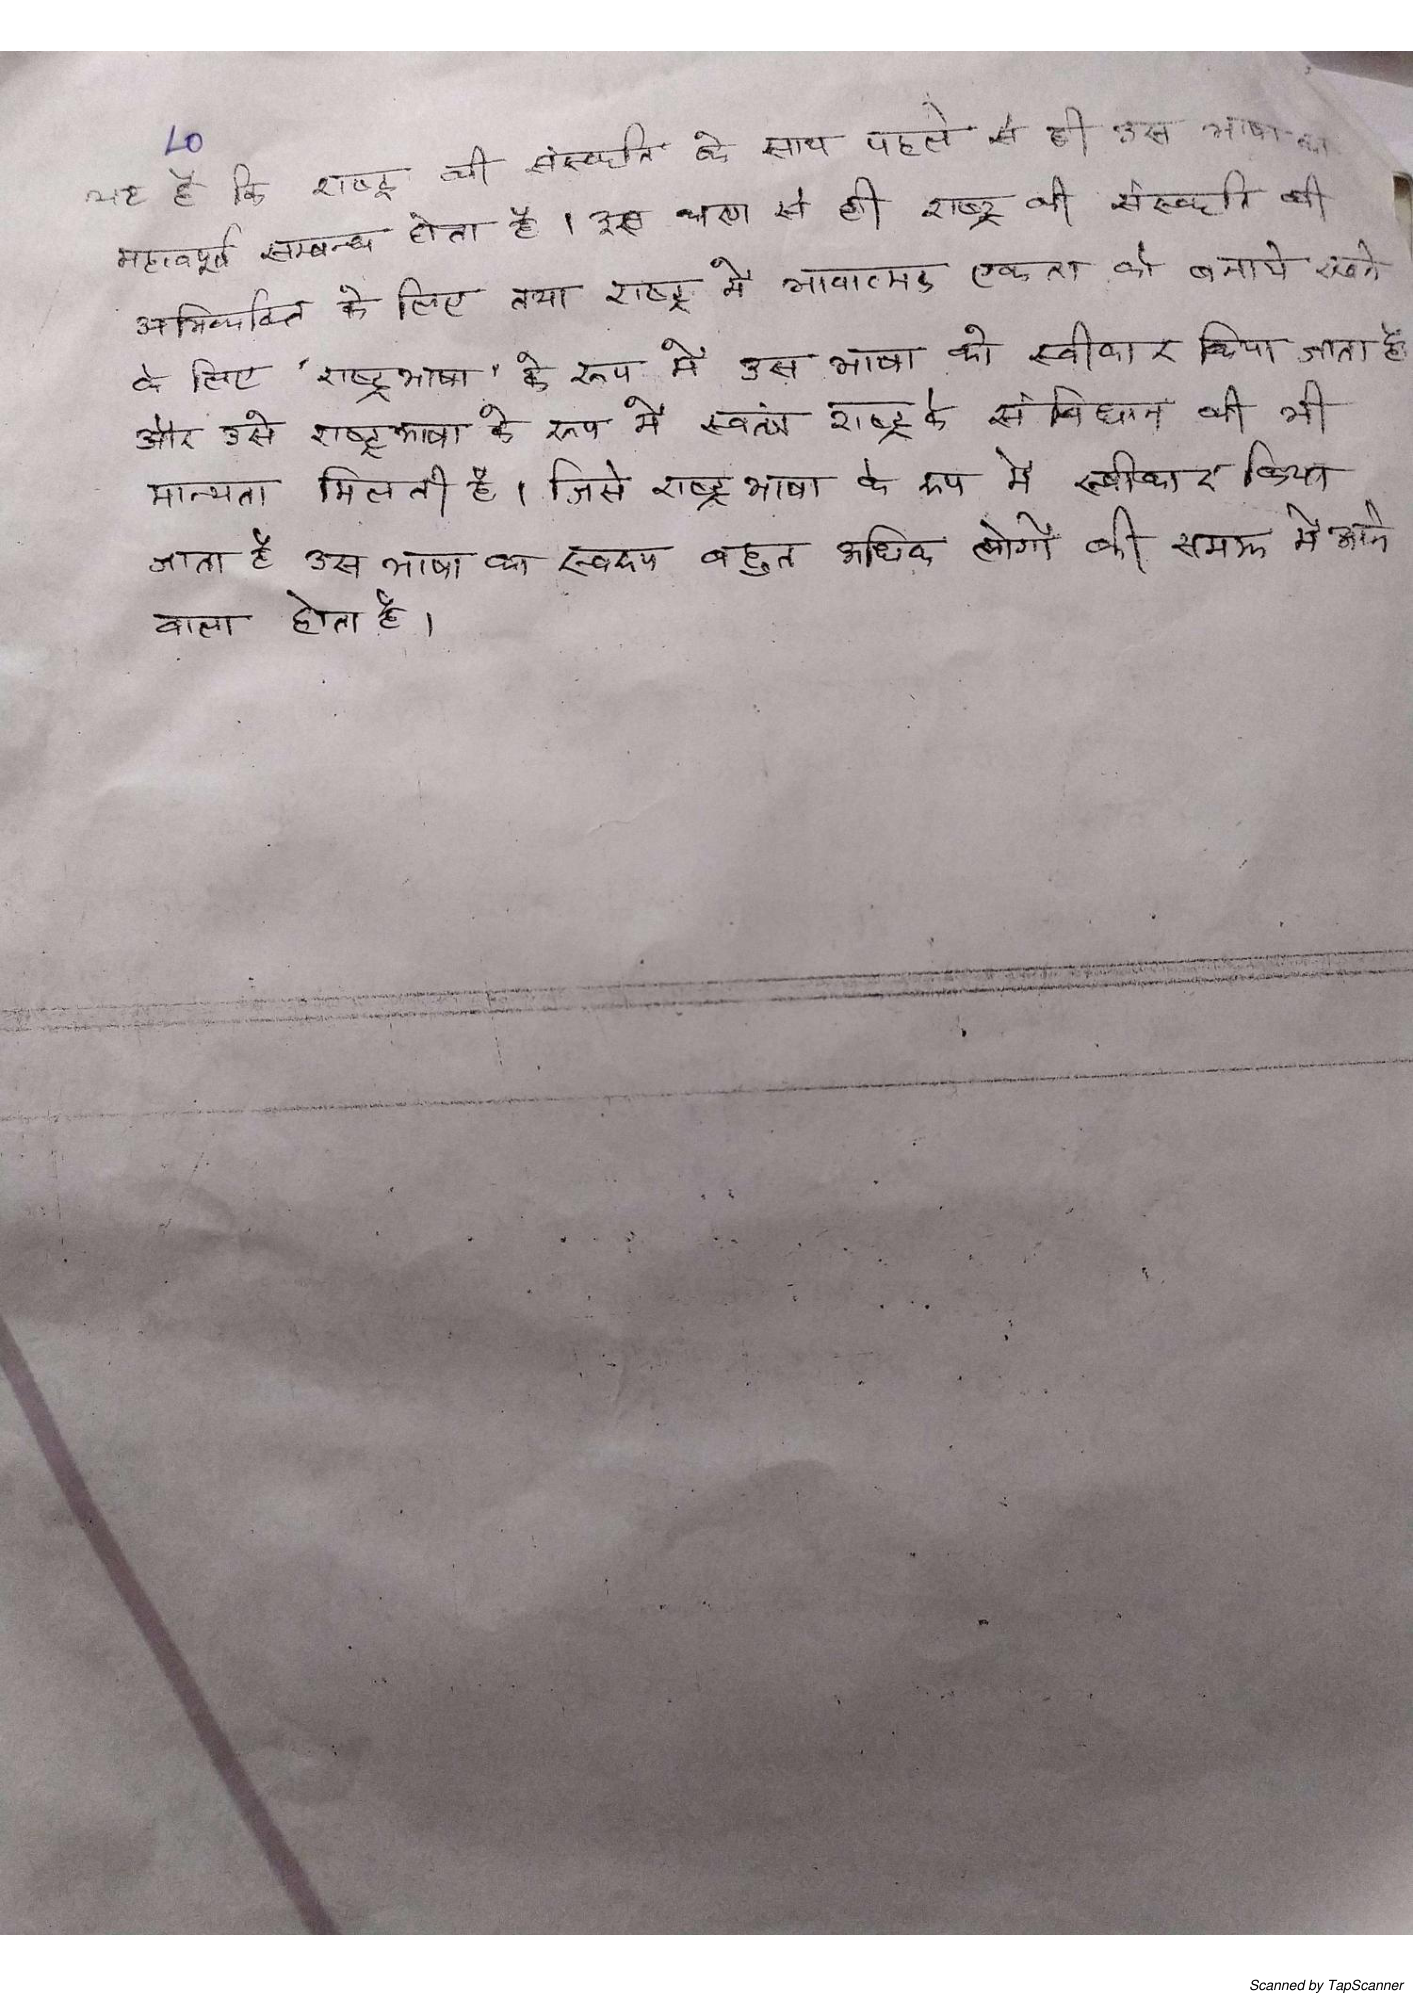 LO
यह है कि राष्ट्र की संस्कृति के साथ पहले से ही उस भाषा का
महत्वपूर्ण सम्बन्ध होता है। इस कारण से ही राष्ट्र की संस्कृति की
अभिव्यक्ति के लिए तथा राष्ट्र में भावात्मक एकता को बनाये रखने
के लिए 'राष्ट्रभाषा' के रूप में उस भाषा को स्वीकार किया जाता है
और उसे राष्ट्रभाषा के रूप में स्वतंत्र राष्ट्र के संविधान की भी
मान्यता मिलती है। जिसे राष्ट्रभाषा के रूप में स्वीकार किया
जाता है उस भाषा का स्वरूप बहुत अधिक लोगों की समझ में आने
वाला होता है।
Scanned by TapScanner